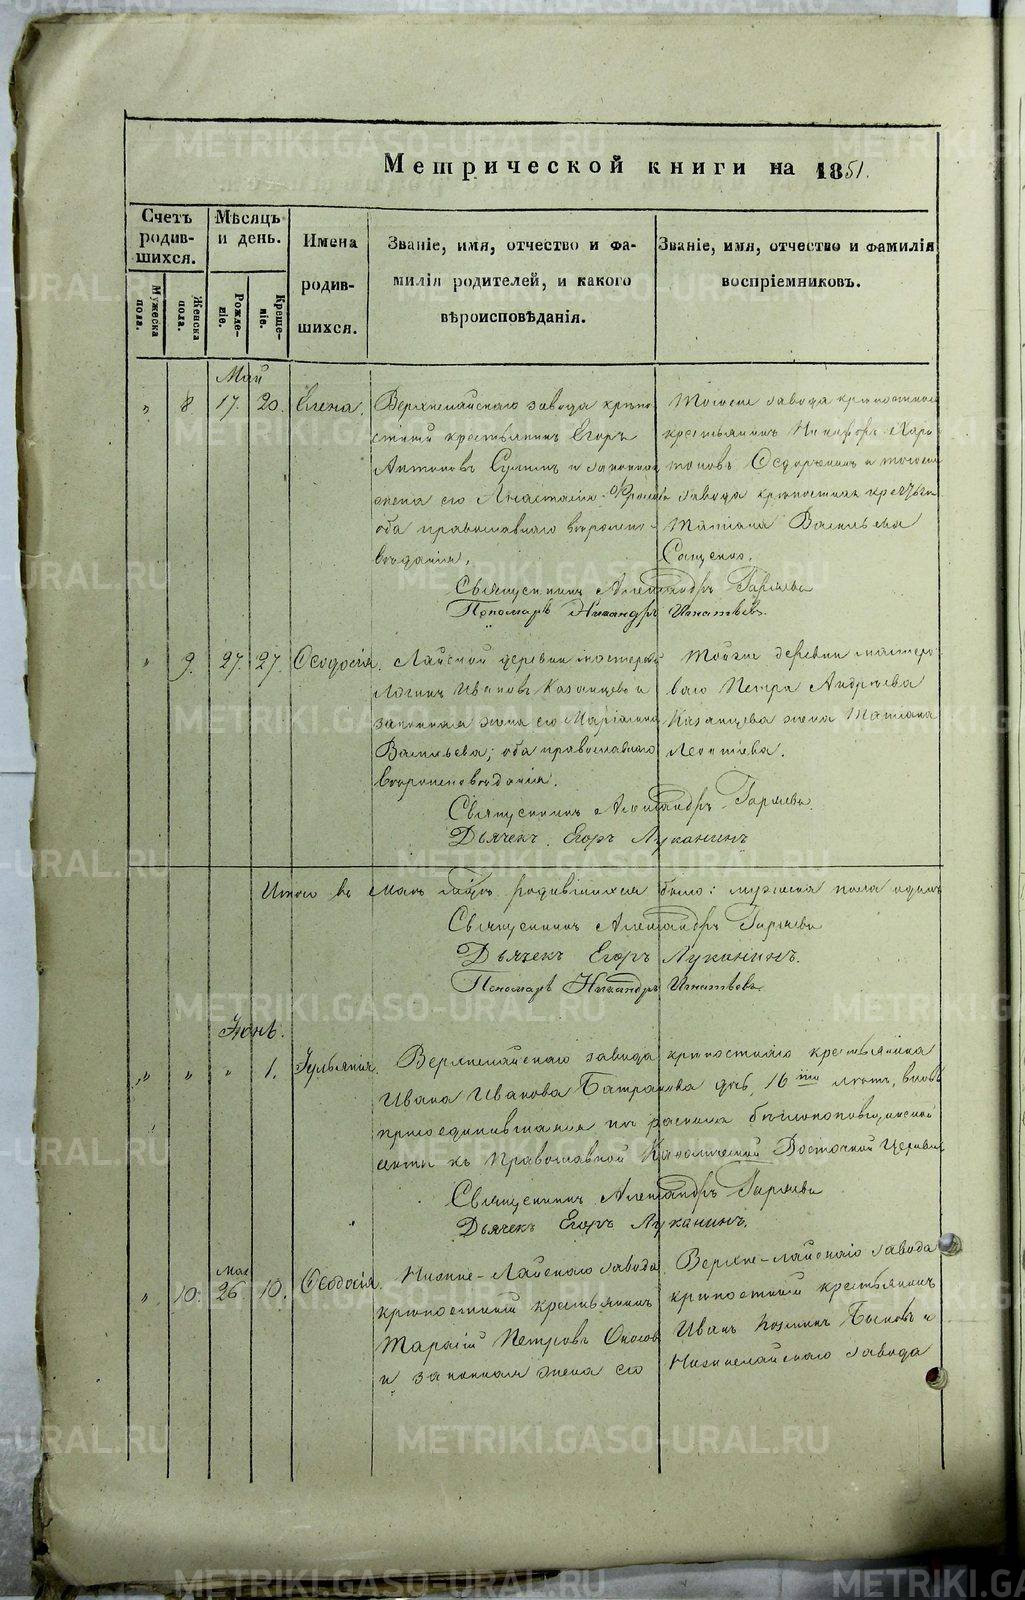 Метрической книги на 1851.
Счетъ родившихся.
Мѣсяцъ и день.
Имена родившихся.
Званіе, имя, отчество и фамилія родителей, и какого вѣроисповѣданія.
Званіе, имя, отчество и фамилія воспріемниковъ.
Мужеска пола.
Женска пола.
Рожденіе.
Крещеніе.
Май
" 8. 17. 20. Елена.
Верхнелайскаго завода крѣпо-
стный крестьянинъ Егоръ
Антоновъ и законная
жена его Анастасія
оба православнаго вѣроиспо-
вѣданія.
завода крѣпостной
крестьянинъ Никифоръ Хари-
тоновъ и
завода крѣпостная
Татіана Васильева
Священникъ Александръ Гаряевъ
Пономарь Никандръ Игнатьевъ.
" 9. 27. 27. Ѳеодосія.
Лайской деревни мастеровой
Логинъ Ивановъ Казанцевъ и
законная жена его Маріамна
Васильева; оба православнаго
вѣроисповѣданія.
Тойже деревни мастеро-
ваго Петра Андреева
Казанцева жена Татіана
Леонтіева.
Священникъ Александръ Гаряевъ.
Дьячекъ Егоръ Луканинъ
Итого въ Маѣ мѣсяцѣ родившихся было: мужеска пола одинъ
Священникъ Александръ Гаряевъ
Дьячекъ Егоръ Луканинъ.
Пономарь Никандръ Игнатьевъ.
Іюнь.
" " " 1. Іуліянія.
Верхнелайскаго завода крѣпостнаго крестьянина
Ивана Иванова дочь, 16 ти лѣтъ, вновь
присоединившаяся изъ раскола
секты къ Православной Каѳолической Восточной Церкви
Священникъ Александръ Гаряевъ
Дьячекъ Егоръ Луканинъ.
" 10. Мая 26 10. Ѳеодосія.
Нижне-Лайскаго завода
крѣпостный крестьянинъ
Тарасій Петровъ
и законная жена его
Верхне-лайскаго завода
крѣпостный крестьянинъ
Иванъ Козминъ Быковъ и
Нижнелайскаго завода
METRIKI.GASO-URAL.RU